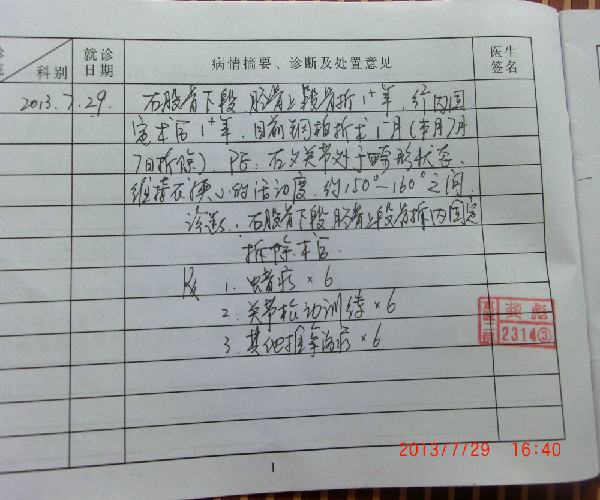 诊 科别 就诊日期 病情摘要、诊断及处置意见 医生签名
2013.7.29. 右股骨下段 胫骨上段骨折1⁺年,行内固
定术后1⁺年,目前钢板拆术1⁺月(本月7月
7日拆除),PE:右膝关节处于畸形状态,
维持在 的活动度,约150°~160°之间
诊断:右股骨下段胫骨上段骨折内固定
拆除术后
Rx 1. 蜡疗 × 6
2. 关节松动训练 × 6
3. 其他推拿治疗 × 6
龚彪
2314③
1
2013/7/29 16:40